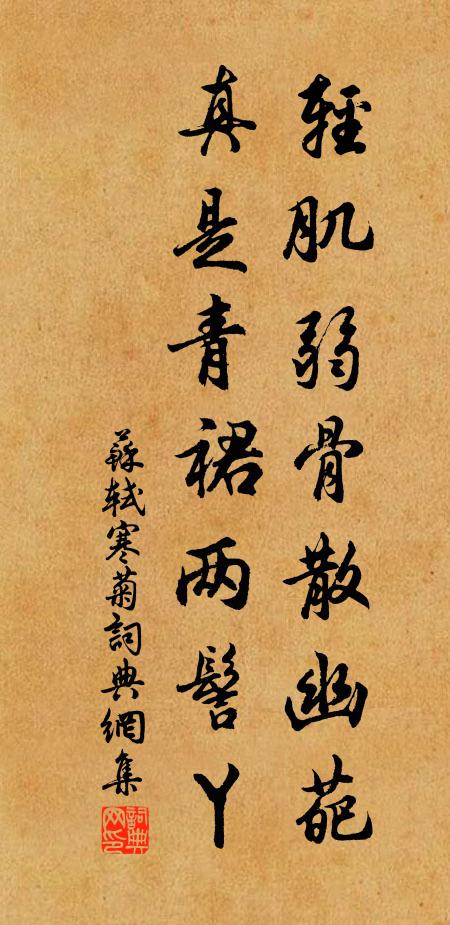 輕肌弱骨散幽葩
真是青裙两髻丫
蘇軾寒菊詞典網集
詞典网印